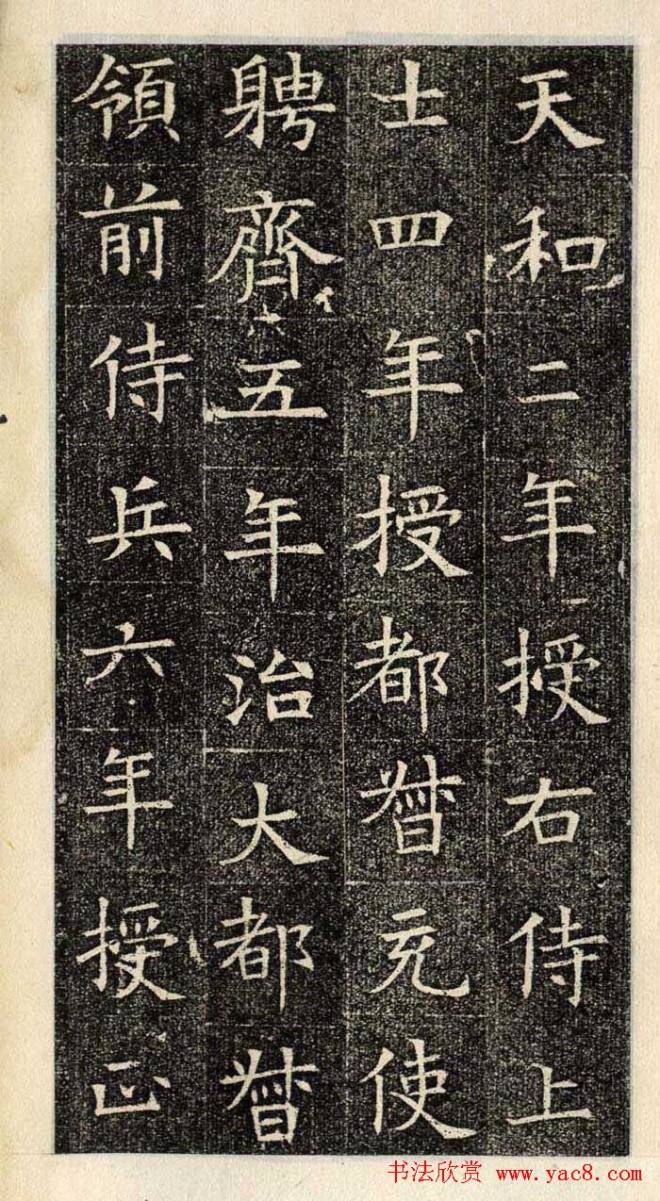 天和二年授右侍上
士四年授都督充使
聘齊五年治大都督
領前侍兵六年授正
书法欣赏 www.yac8.com